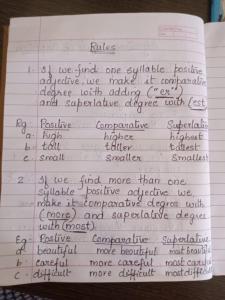 Rules
1. If we find one syllable positive
adjective, we make it comparative
degree with adding ("er")
and superlative degree with (est
Eg. Positive Comparative Superlative
a. high higher highest
b. tall taller tallest
c. small smaller smallest
2. If we find more than one
syllable positive adjective we
make it comparative degree with
(more) and superlative degree
with (most).
Eg. Positive Comparative Superlative
a beautiful more beautiful most beautiful
b. careful more careful most careful
c. difficult more difficult most difficult